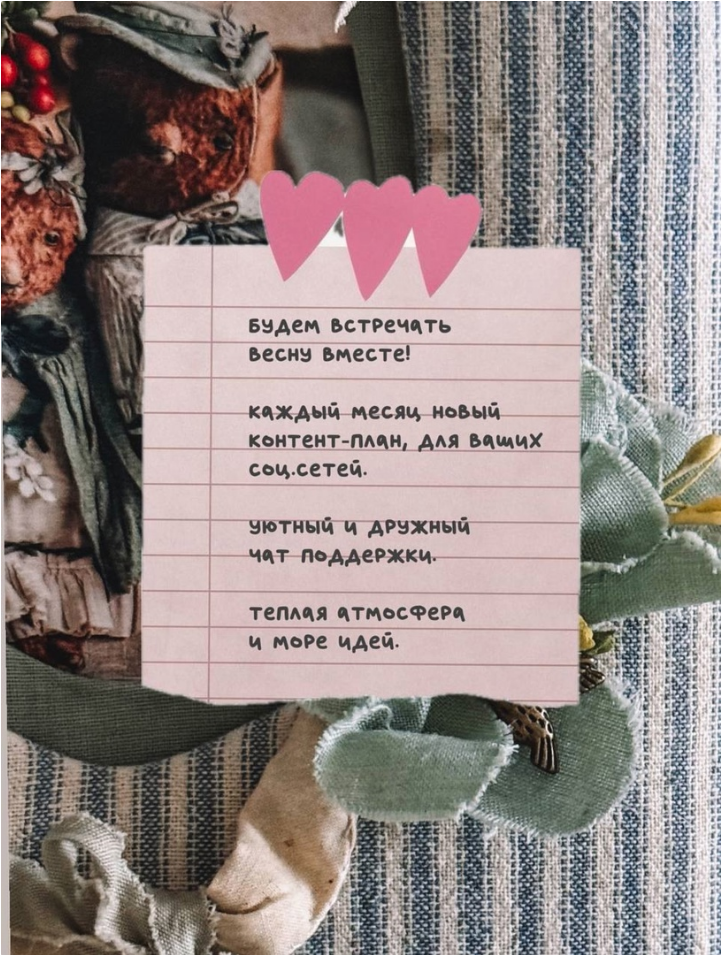 Будем встречать
весну вместе!
каждый месяц новый
контент-план, для ваших
соц.сетей.
уютный и дружный
чат поддержки.
теплая атмосфера
и море идей.